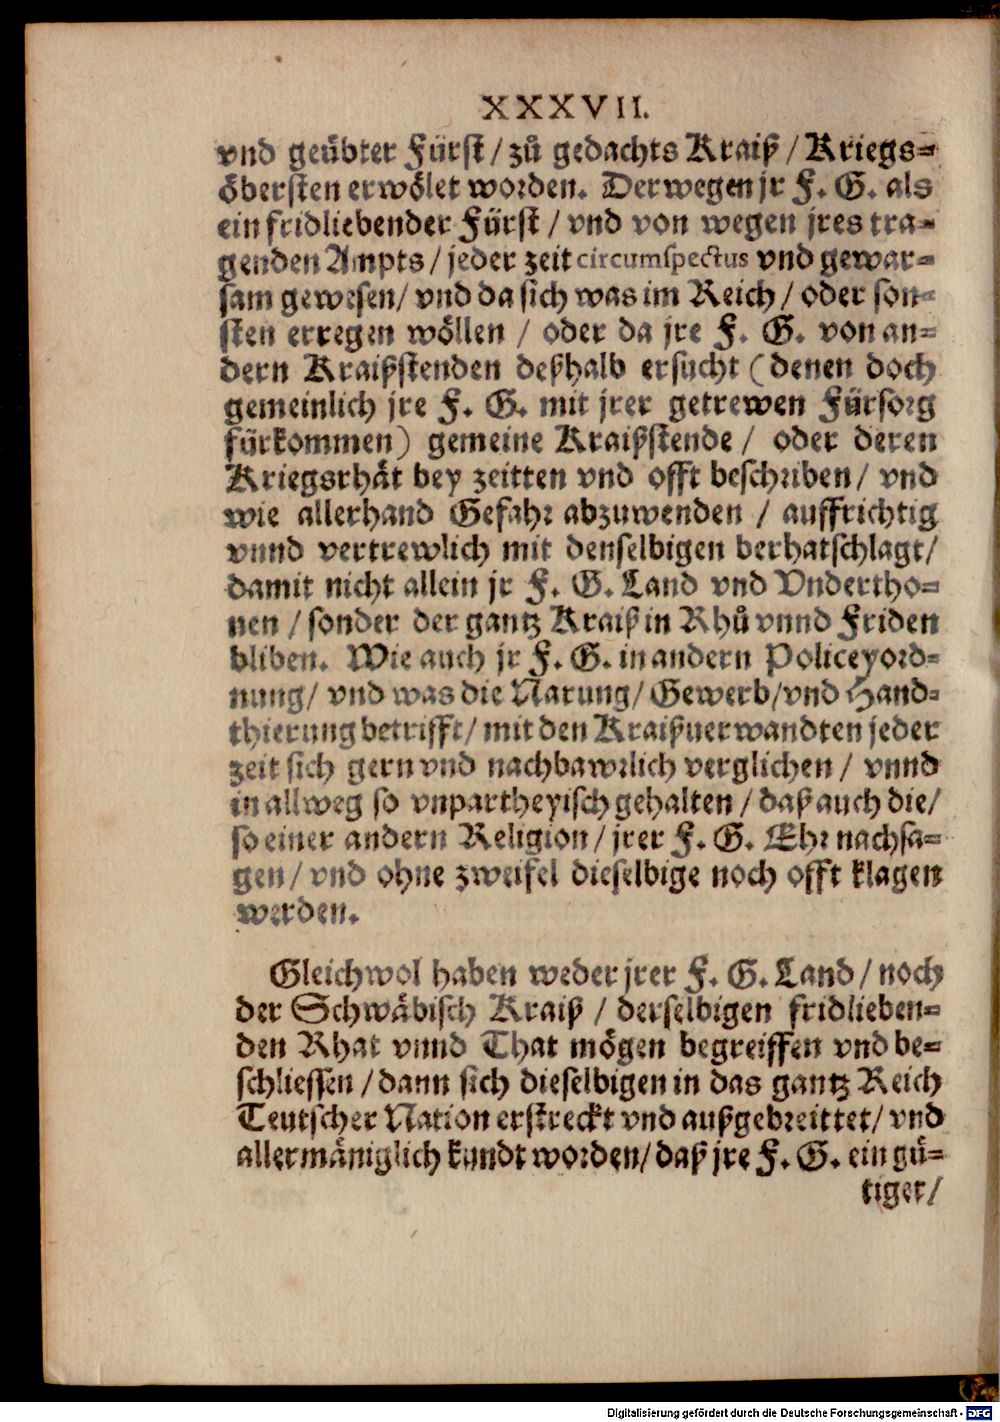 XXXVII.
vnd geübter Fürst / zů gedachts Kraiß / Kriegs=
öbersten erwölet worden. Derwegen jr F. G. als
ein fridliebender Fürst / vnd von wegen jres tra=
genden Ampts / jeder zeit circumspectus vnd gewar=
sam gewesen / vnd da sich was im Reich / oder son=
sten erregen wöllen / oder da jre F. G. von an=
dern Kraißstenden deßhalb ersucht ( denen doch
gemeinlich jre F. G. mit jrer getrewen Fürsorg
fürkommen ) gemeine Kraißstende / oder deren
Kriegsrhät bey zeitten vnd offt beschriben / vnd
wie allerhand Gefahr abzuwenden / auffrichtig
vnnd vertrewlich mit denselbigen berhatschlagt /
damit nicht allein jr F. G. Land vnd Vndertho=
nen / sonder der gantz Kraiß in Rhů vnnd Friden
bliben. Wie auch jr F. G. in andern Policeyord=
nung / vnd was die Narung / Gewerb / vnd Hand=
thierung betrifft / mit den Kraißuerwandten jeder
zeit sich gern vnd nachbawrlich verglichen / vnnd
in allweg so vnpartheyisch gehalten / daß auch die /
so einer andern Religion / jrer F. G. Ehr nachsa=
gen / vnd ohne zweifel dieselbige noch offt klagen
werden.
Gleichwol haben weder jrer F. G. Land / noch
der Schwäbisch Kraiß / derselbigen fridlieben=
den Rhat vnnd That mögen begreiffen vnd be=
schliessen / dann sich dieselbigen in das gantz Reich
Teutscher Nation erstreckt vnd außgebreittet / vnd
allermäniglich kundt worden / daß jre F. G. ein gü=
tiger /
Digitalisierung gefördert durch die Deutsche Forschungsgemeinschaft - DFG